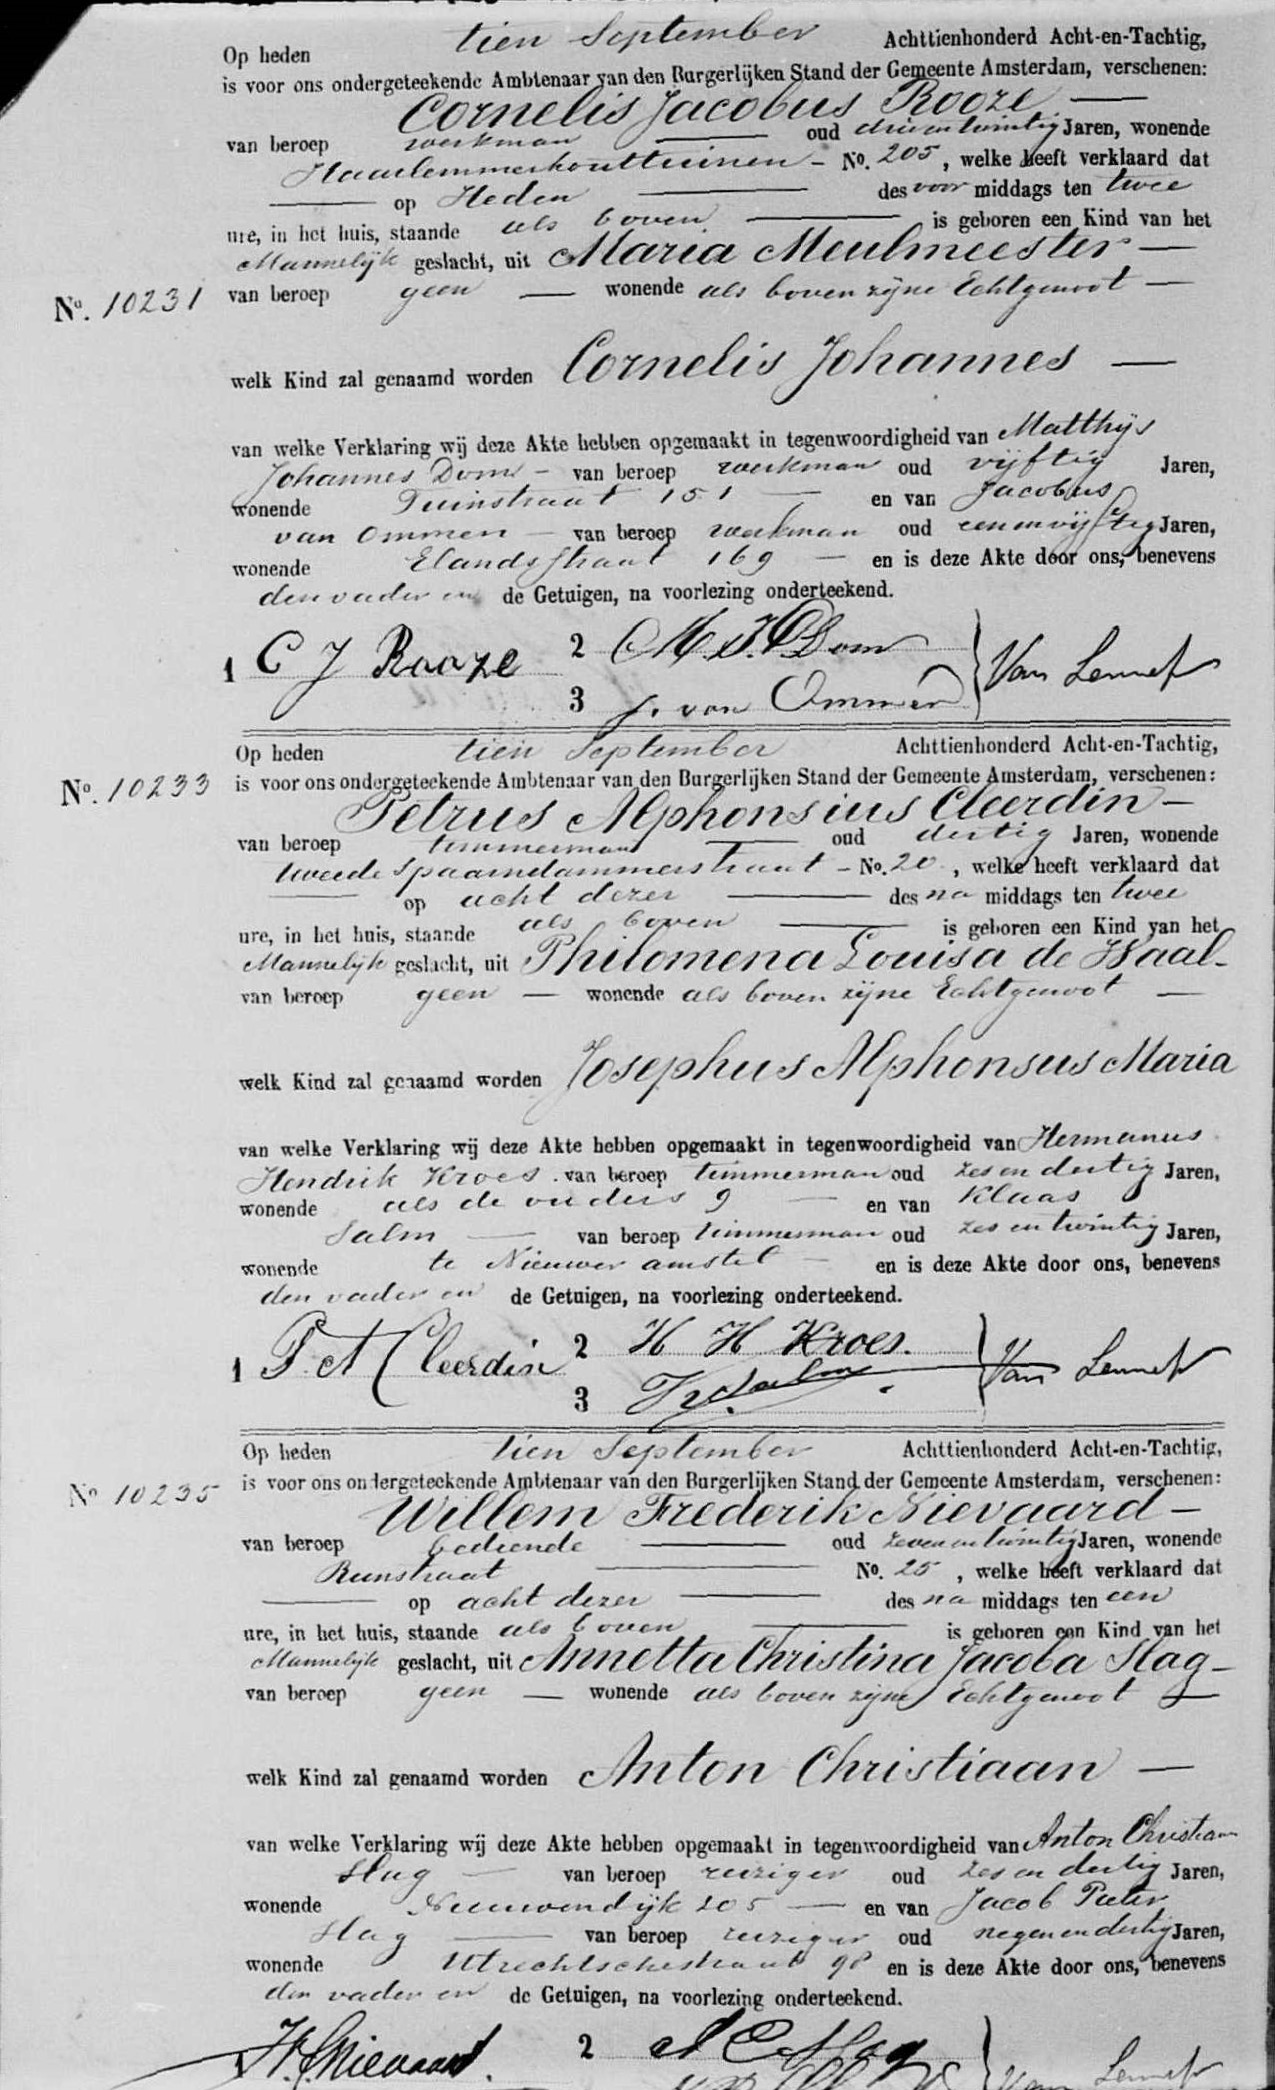 Op heden tien September Achttienhonderd Acht-en-Tachtig,
is voor ons ondergeteekende Ambtenaar van den Burgerlijken Stand der Gemeente Amsterdam, verschenen:
Cornelis Jacobus Rooze
van beroep werkman oud drieentwintig Jaren, wonende
Haarlemmerhouttuinen - No. 205, welke heeft verklaard dat
op Heden des voor middags ten twee
ure, in het huis, staande als boven is geboren een Kind van het
Mannelijk geslacht, uit Maria Meulmeester
No. 10231 van beroep geen wonende als boven zijne Echtgenoot
welk Kind zal genaamd worden Cornelis Johannes
van welke Verklaring wij deze Akte hebben opgemaakt in tegenwoordigheid van Matthijs
Johannes Dom - van beroep werkman oud vijftig Jaren,
wonende Tuinstraat 151 en van Jacobus
van Ommen van beroep werkman oud eenenvijftig Jaren,
wonende Elandsstraat 169 en is deze Akte door ons, benevens
den vader en de Getuigen, na voorlezing onderteekend.
1 C J Rooze 2 M. J. Dom Van Lennep
3 J. van Ommen
Op heden tien September Achttienhonderd Acht-en-Tachtig,
No. 10233 is voor ons ondergeteekende Ambtenaar van den Burgerlijken Stand der Gemeente Amsterdam, verschenen:
Petrus Alphonsius Cleerdin
van beroep timmerman oud dertig Jaren, wonende
tweede Spaarndammerstraat - No. 20, welke heeft verklaard dat
op acht dezer des na middags ten twee
ure, in het huis, staande als boven is geboren een Kind van het
Mannelijk geslacht, uit Philomena Louisa de Waal
van beroep geen wonende als boven zijne Echtgenoot
welk Kind zal genaamd worden Josephus Alphonsus Maria
van welke Verklaring wij deze Akte hebben opgemaakt in tegenwoordigheid van Hermanus
Hendrik Kroes van beroep timmerman oud zesendertig Jaren,
wonende als de ouders 9 en van Klaas
Salm van beroep timmerman oud zesentwintig Jaren,
wonende te Nieuwer amstel en is deze Akte door ons, benevens
den vader en de Getuigen, na voorlezing onderteekend.
1 P. A Cleerdin 2 H H Kroes. Van Lennep
3 Salm
Op heden tien September Achttienhonderd Acht-en-Tachtig,
No 10235 is voor ons ondergeteekende Ambtenaar van den Burgerlijken Stand der Gemeente Amsterdam, verschenen:
Willem Frederik Nievaard
van beroep bediende oud zevenentwintig Jaren, wonende
Runstraat No. 25, welke heeft verklaard dat
op acht dezer des na middags ten een
ure, in het huis, staande als boven is geboren een Kind van het
Mannelijk geslacht, uit Annetta Christina Jacoba Slag
van beroep geen wonende als boven zijne Echtgenoot
welk Kind zal genaamd worden Anton Christiaan
van welke Verklaring wij deze Akte hebben opgemaakt in tegenwoordigheid van Anton Christiaan
Slag van beroep reiziger oud zesendertig Jaren,
wonende Nieuwendijk 205 en van Jacob Pieter
Slag van beroep reiziger oud negenendertig Jaren,
wonende Utrechtschestraat 98 en is deze Akte door ons, benevens
den vader en de Getuigen, na voorlezing onderteekend.
Nievaard. 2 A C Slag
Van Lennep